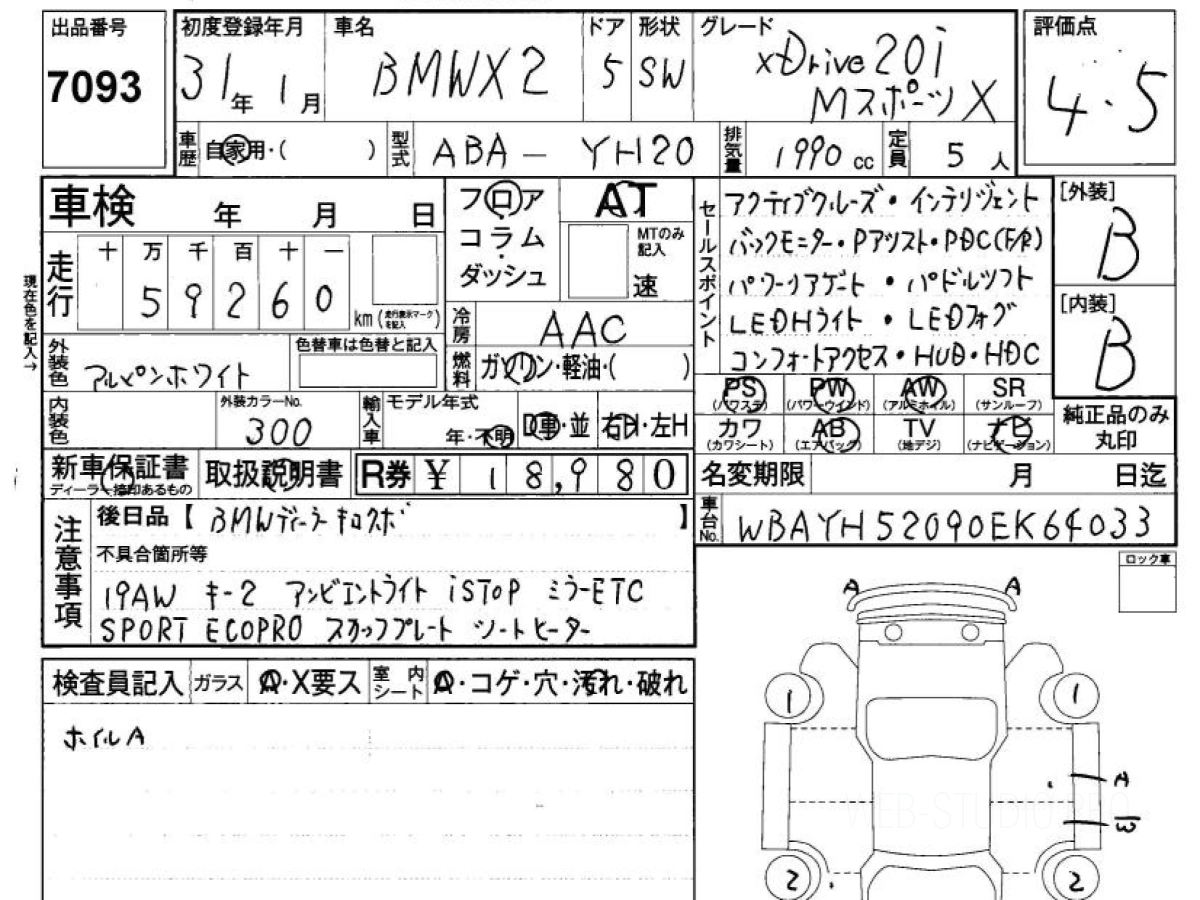 出品番号 7093
初度登録年月 31年 1月
車名 BMWX2
ドア 5
形状 SW
グレード xDrive20i
Mスポーツ X
評価点 4.5
車歴 自家用・( )
型式 ABA - YH20
排気量 1990 cc
定員 5 人
車検 年 月 日
フロア
コラム
ダッシュ
AT
MTのみ記入
速
セールスポイント
アクティブクルーズ・インテリジェント
バックモニター・Pアシスト・PDC(F/R)
パワーリアゲート・パドルシフト
LEDHライト・LEDフォグ
コンフォートアクセス・HUD・HDC
[外装] B
[内装] B
現在色を記入→
走行 十 万 千 百 十 一
59260 km (走行表示マークを記入)
冷房 AAC
燃料 ガソリン・軽油・( )
外装色 アルピンホワイト
色替車は色替と記入
内装色
外装カラーNo. 300
輸入車
モデル年式 年・不明
D車・並
右H・左H
PS (パワステ)
PW (パワーウインド)
AW (アルミホイル)
SR (サンルーフ)
カワ (カワシート)
AB (エアバッグ)
TV (地デジ)
ナビ (ナビゲーション)
純正品のみ
丸印
新車保証書
ディーラー捺印あるもの
取扱説明書
R券 ¥ 18,980
名変期限 月 日迄
車台No. WBAYH52090EK64033
注意事項
後日品【 BMWディーラーキロスポ 】
不具合箇所等
19AW キー2 アンビエントライト iSTOP ミラーETC
SPORT ECOPRO スカッフプレート シートヒーター
ロック車
検査員記入
ガラス A・X要ス
室内シート A・コゲ・穴・汚れ・破れ
ホイルA
A A
1 1
A
W
2 2
WEB-STUDIO PRO